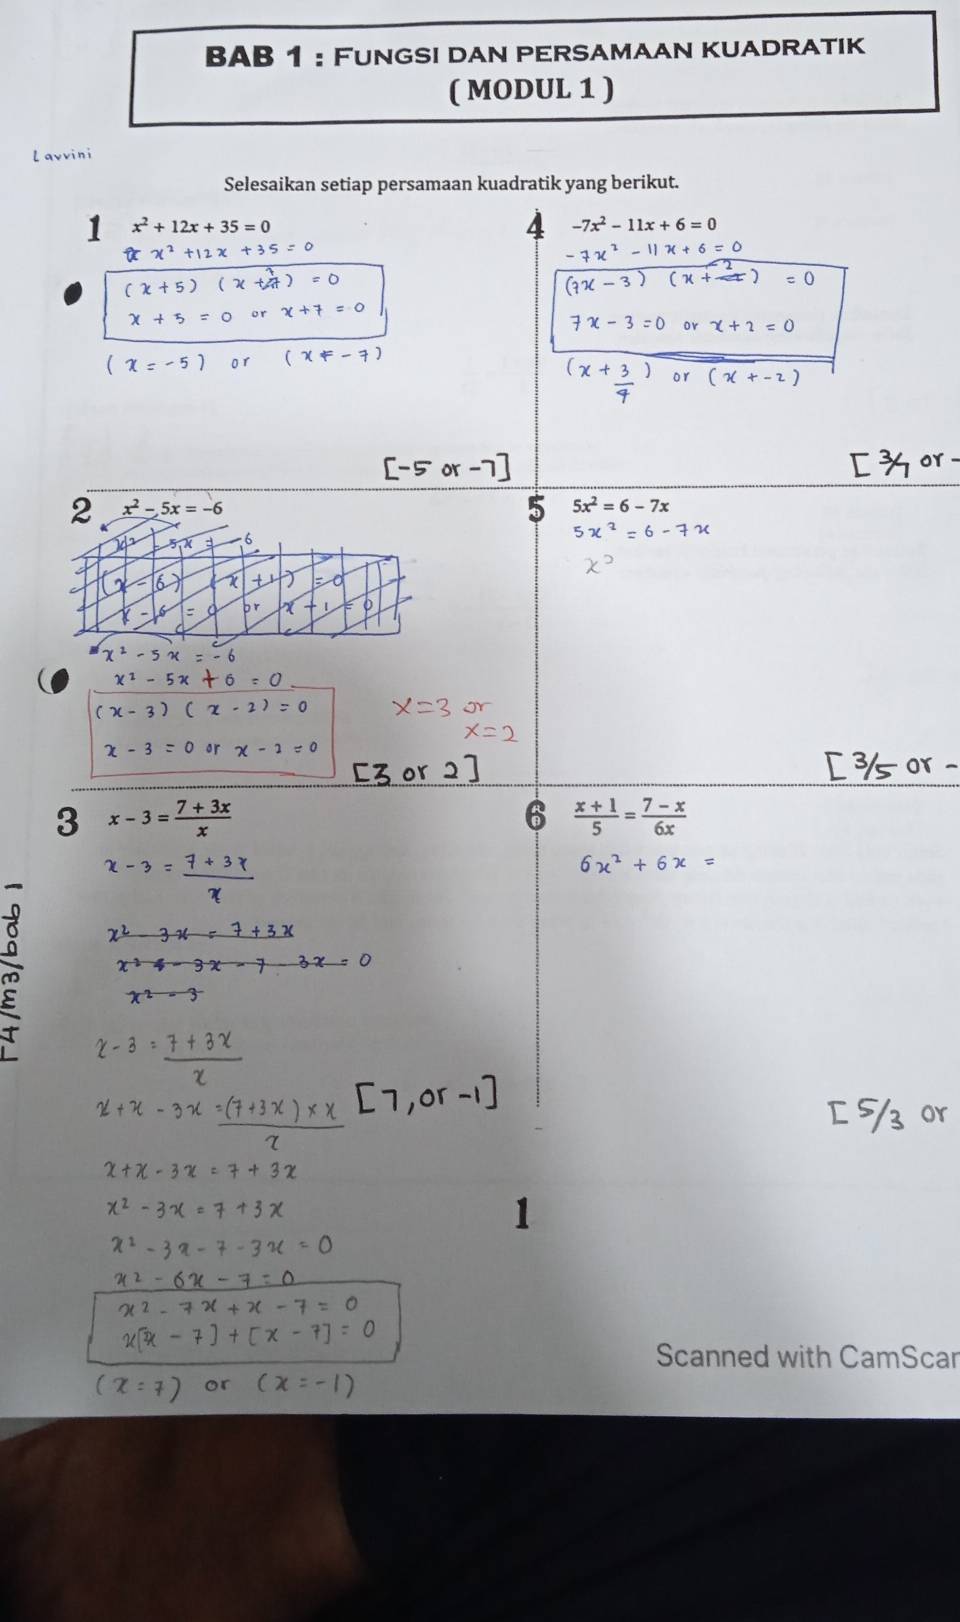 BAB 1 : FUNGSI DAN PERSAMAAN KUADRATIK
( MODUL 1 )
Lavvini
Selesaikan setiap persamaan kuadratik yang berikut.
1 x² + 12x + 35 = 0
x² + 12x + 35 = 0
(x + 5) (x + 7) = 0
x + 5 = 0 or x + 7 = 0
(x = -5) or (x = -7)
[-5 or -7]
2 x² - 5x = -6
x² - 5x = -6
(x - 6) (x + 1) = 0
x - 6 = 0 or x + 1 = 0
x² - 5x = -6
x² - 5x + 6 = 0
(x - 3) (x - 2) = 0
x - 3 = 0 or x - 2 = 0
x = 3 or
x = 2
[3 or 2]
3 x - 3 = (7 + 3x)/x
x - 3 = (7 + 3x)/x
x² - 3x = 7 + 3x
x² - 3x - 7 - 3x = 0
x² - 3
x - 3 = (7 + 3x)/x
x + x - 3x = (7 + 3x) × x / x
[7, or -1]
x + x - 3x = 7 + 3x
x² - 3x = 7 + 3x
x² - 3x - 7 - 3x = 0
x² - 6x - 7 = 0
x² - 7x + x - 7 = 0
x[x - 7] + [x - 7] = 0
(x = 7) or (x = -1)
F4/m3/bab 1
4 -7x² - 11x + 6 = 0
-7x² - 11x + 6 = 0
(7x - 3) (x + 2) = 0
7x - 3 = 0 or x + 2 = 0
(x + 3/7) or (x + -2)
[3/7 or -
5 5x² = 6 - 7x
5x² = 6 - 7x
x²
[3/5 or -
6 (x + 1)/5 = (7 - x)/6x
6x² + 6x =
[5/3 or
1
Scanned with CamScan